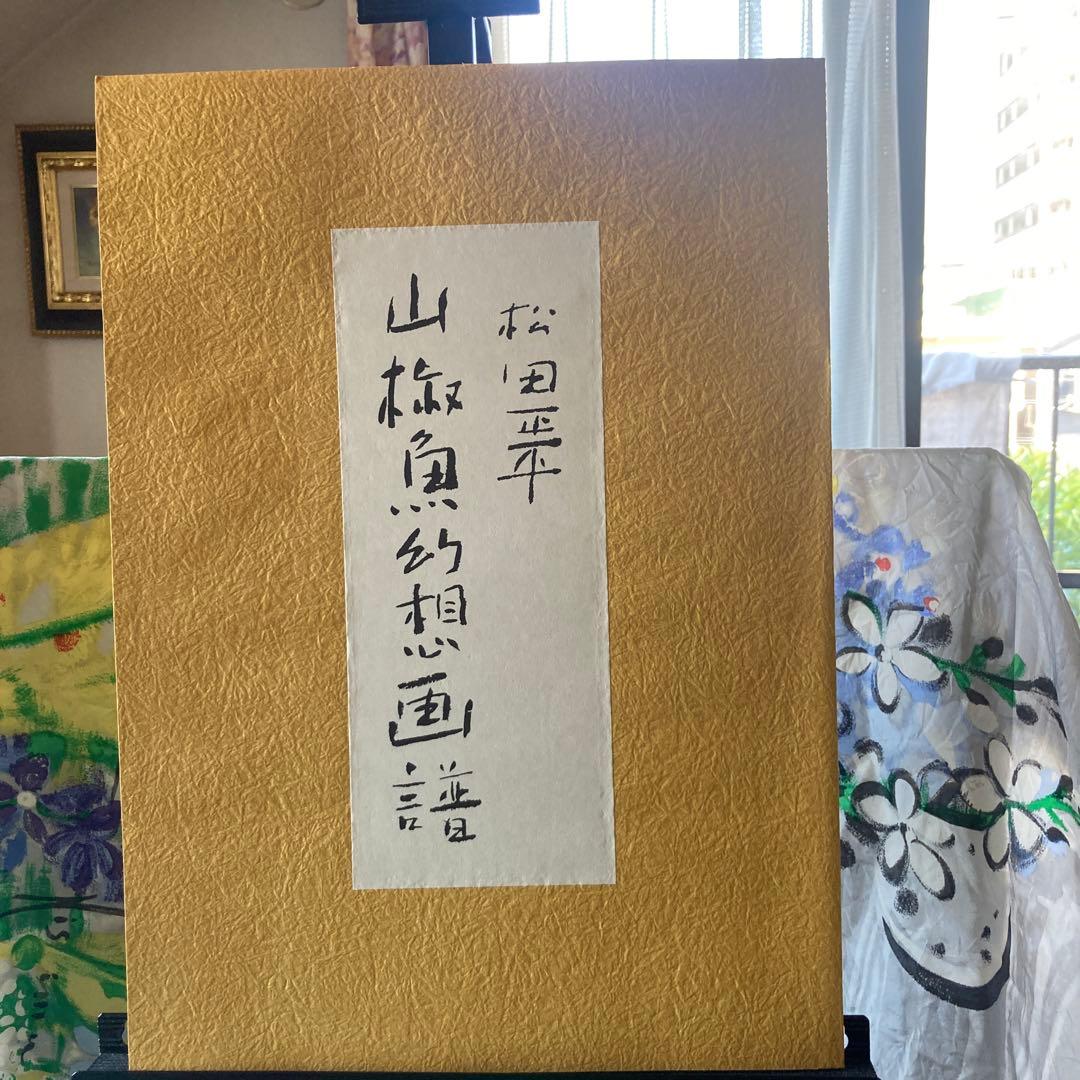 松田正平
山椒魚幻想画譜